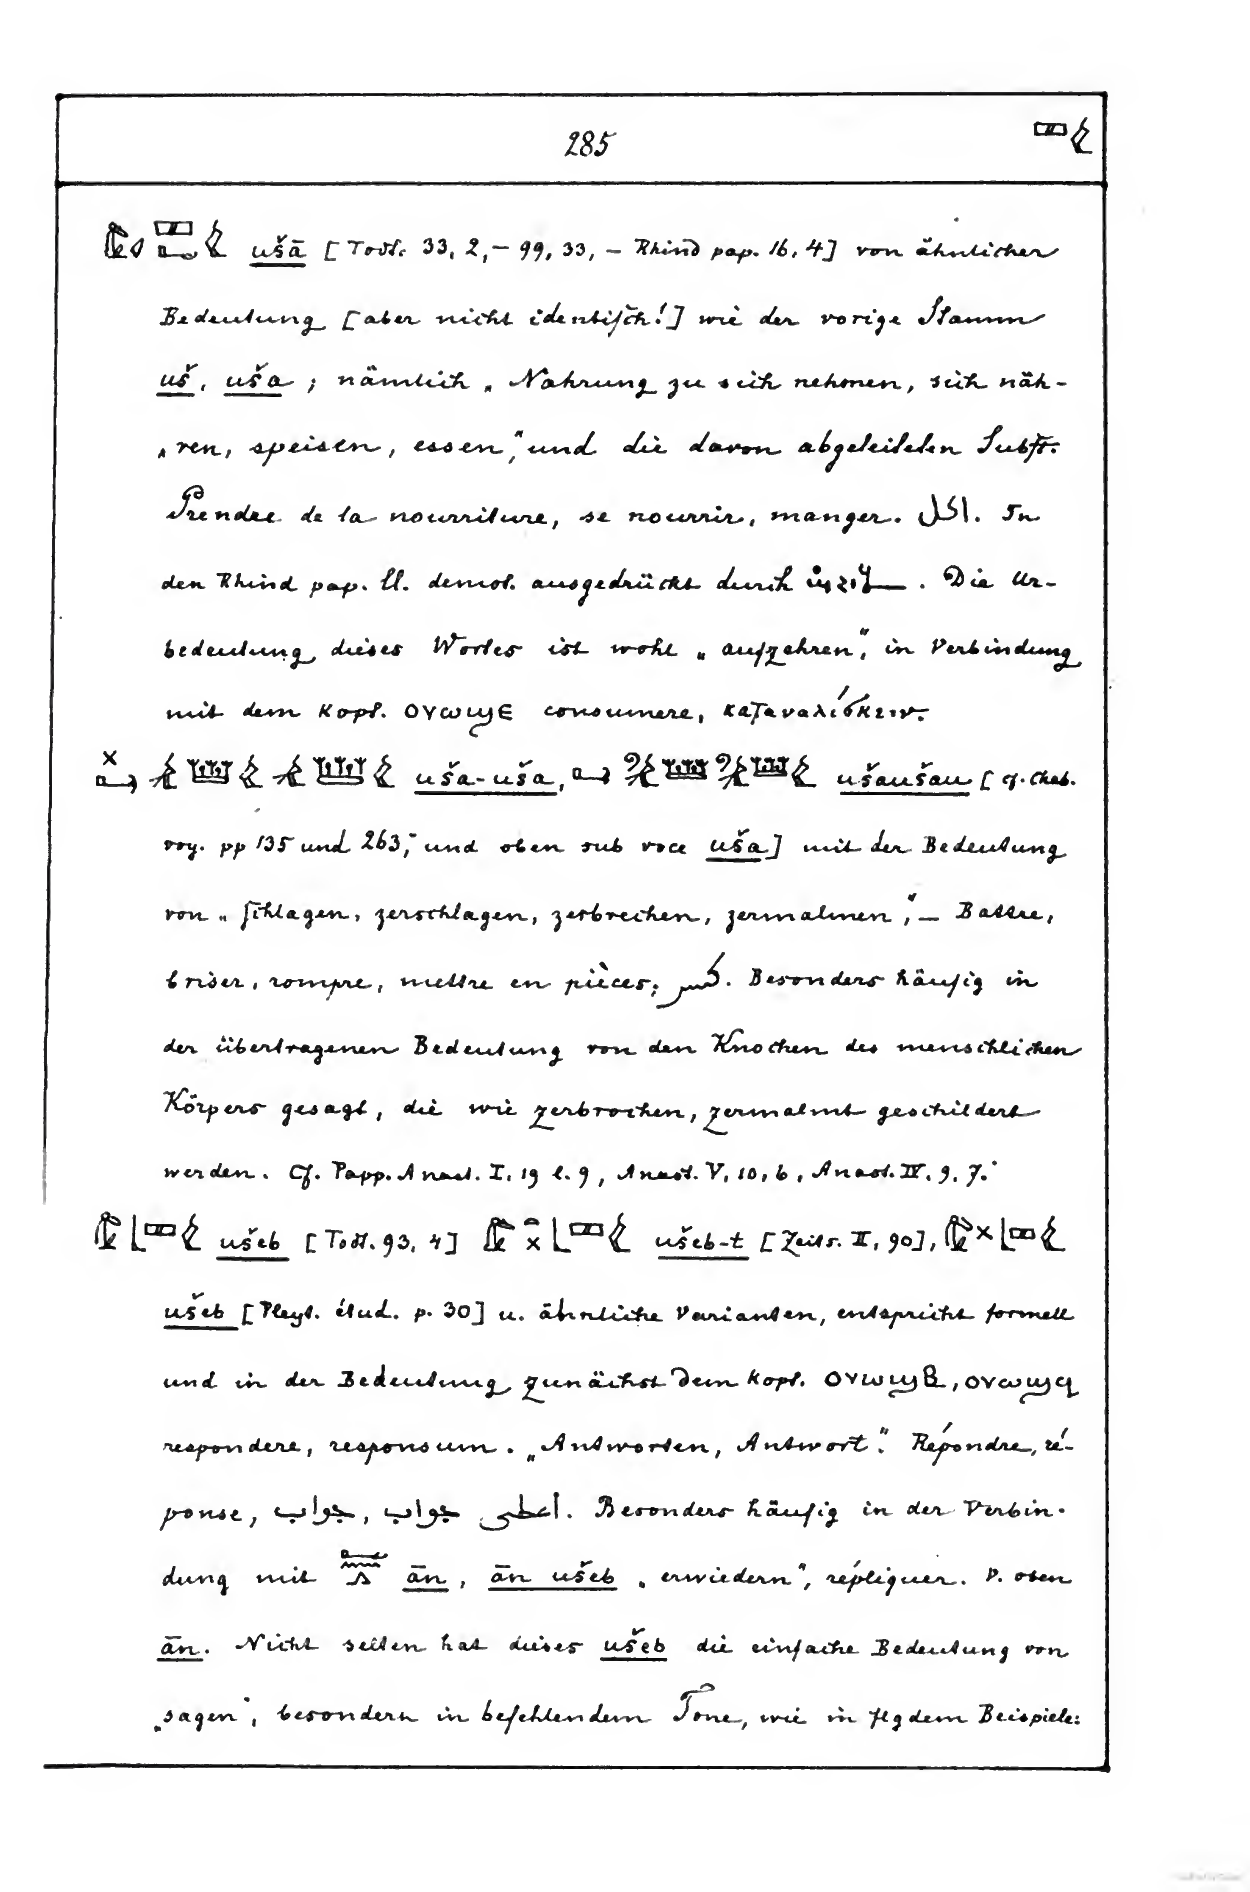 285
ušā [Todt. 33, 2, – 99, 33, – Rhind pap. 16, 4] von ähnlicher
Bedeutung [aber nicht identisch!] wie der vorige Stamm
uš, uša; nämlich „Nahrung zu sich nehmen, sich näh-
„ren, speisen, essen," und die davon abgeleiteten Subst.
Prendre de la nourriture, se nourrir, manger. اكل. In
den Rhind pap. ll. demot. ausgedrückt durch . Die Ur-
bedeutung dieses Wortes ist wohl „aufzehren", in Verbindung
mit dem Kopt. ⲟⲩⲱϣⲉ consumere, καταναλίσκειν.
uša-uša, ušaušau [cf. Chab.
voy. pp 135 und 263, und oben sub voce uša] mit der Bedeutung
von „schlagen, zerschlagen, zerbrechen, zermalmen", – Battre,
briser, rompre, mettre en pièces, كسر. Besonders häufig in
der übertragenen Bedeutung von den Knochen des menschlichen
Körpers gesagt, die wie zerbrochen, zermalmt geschildert
werden. Cf. Papp. Anast. I, 19 l. 9, Anast. V, 10, 6, Anast. IV. 9, 7.
ušeb [Todt. 93, 4] ušeb-t [Zeits. II, 90],
ušeb [Pleyt. étud. p. 30] u. ähnliche Varianten, entspricht formell
und in der Bedeutung zunächst dem Kopt. ⲟⲩⲱϣⲃ, ⲟⲩⲱϣϥ
respondere, responsum. „Antworten, Antwort". Répondre, ré-
ponse, جواب, أعطى جواب. Besonders häufig in der Verbin-
dung mit ān, ān ušeb „erwiedern", répliquer. V. oben
ān. Nicht selten hat dieses ušeb die einfache Bedeutung von
„sagen", besondern in befehlendem Tone, wie in flgdem Beispiele: